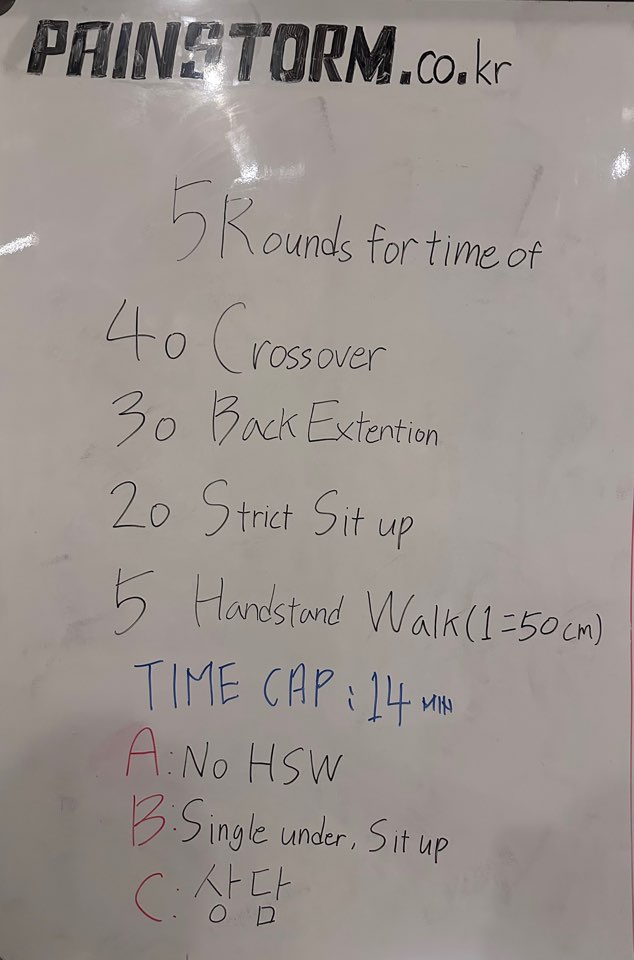 PAINSTORM.co.kr
5 Rounds for time of
40 Crossover
30 Back Extention
20 Strict Sit up
5 Handstand Walk (1=50cm)
TIME CAP : 14 MIN
A: No HSW
B: Single under, Sit up
C: 상담